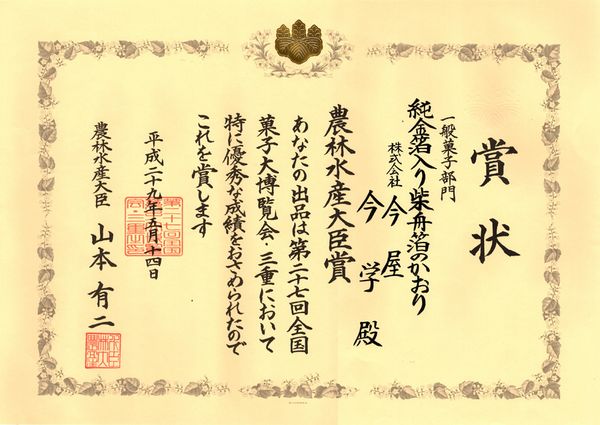 賞状
一般菓子部門
純金箔入り柴舟箔のかおり
株式会社 今屋
今学殿
農林水産大臣賞
あなたの出品は第二十七回全国
菓子大博覧会・三重において
特に優秀な成績をおさめられたので
これを賞します
平成二十九年五月十四日
農林水産大臣 山本有二